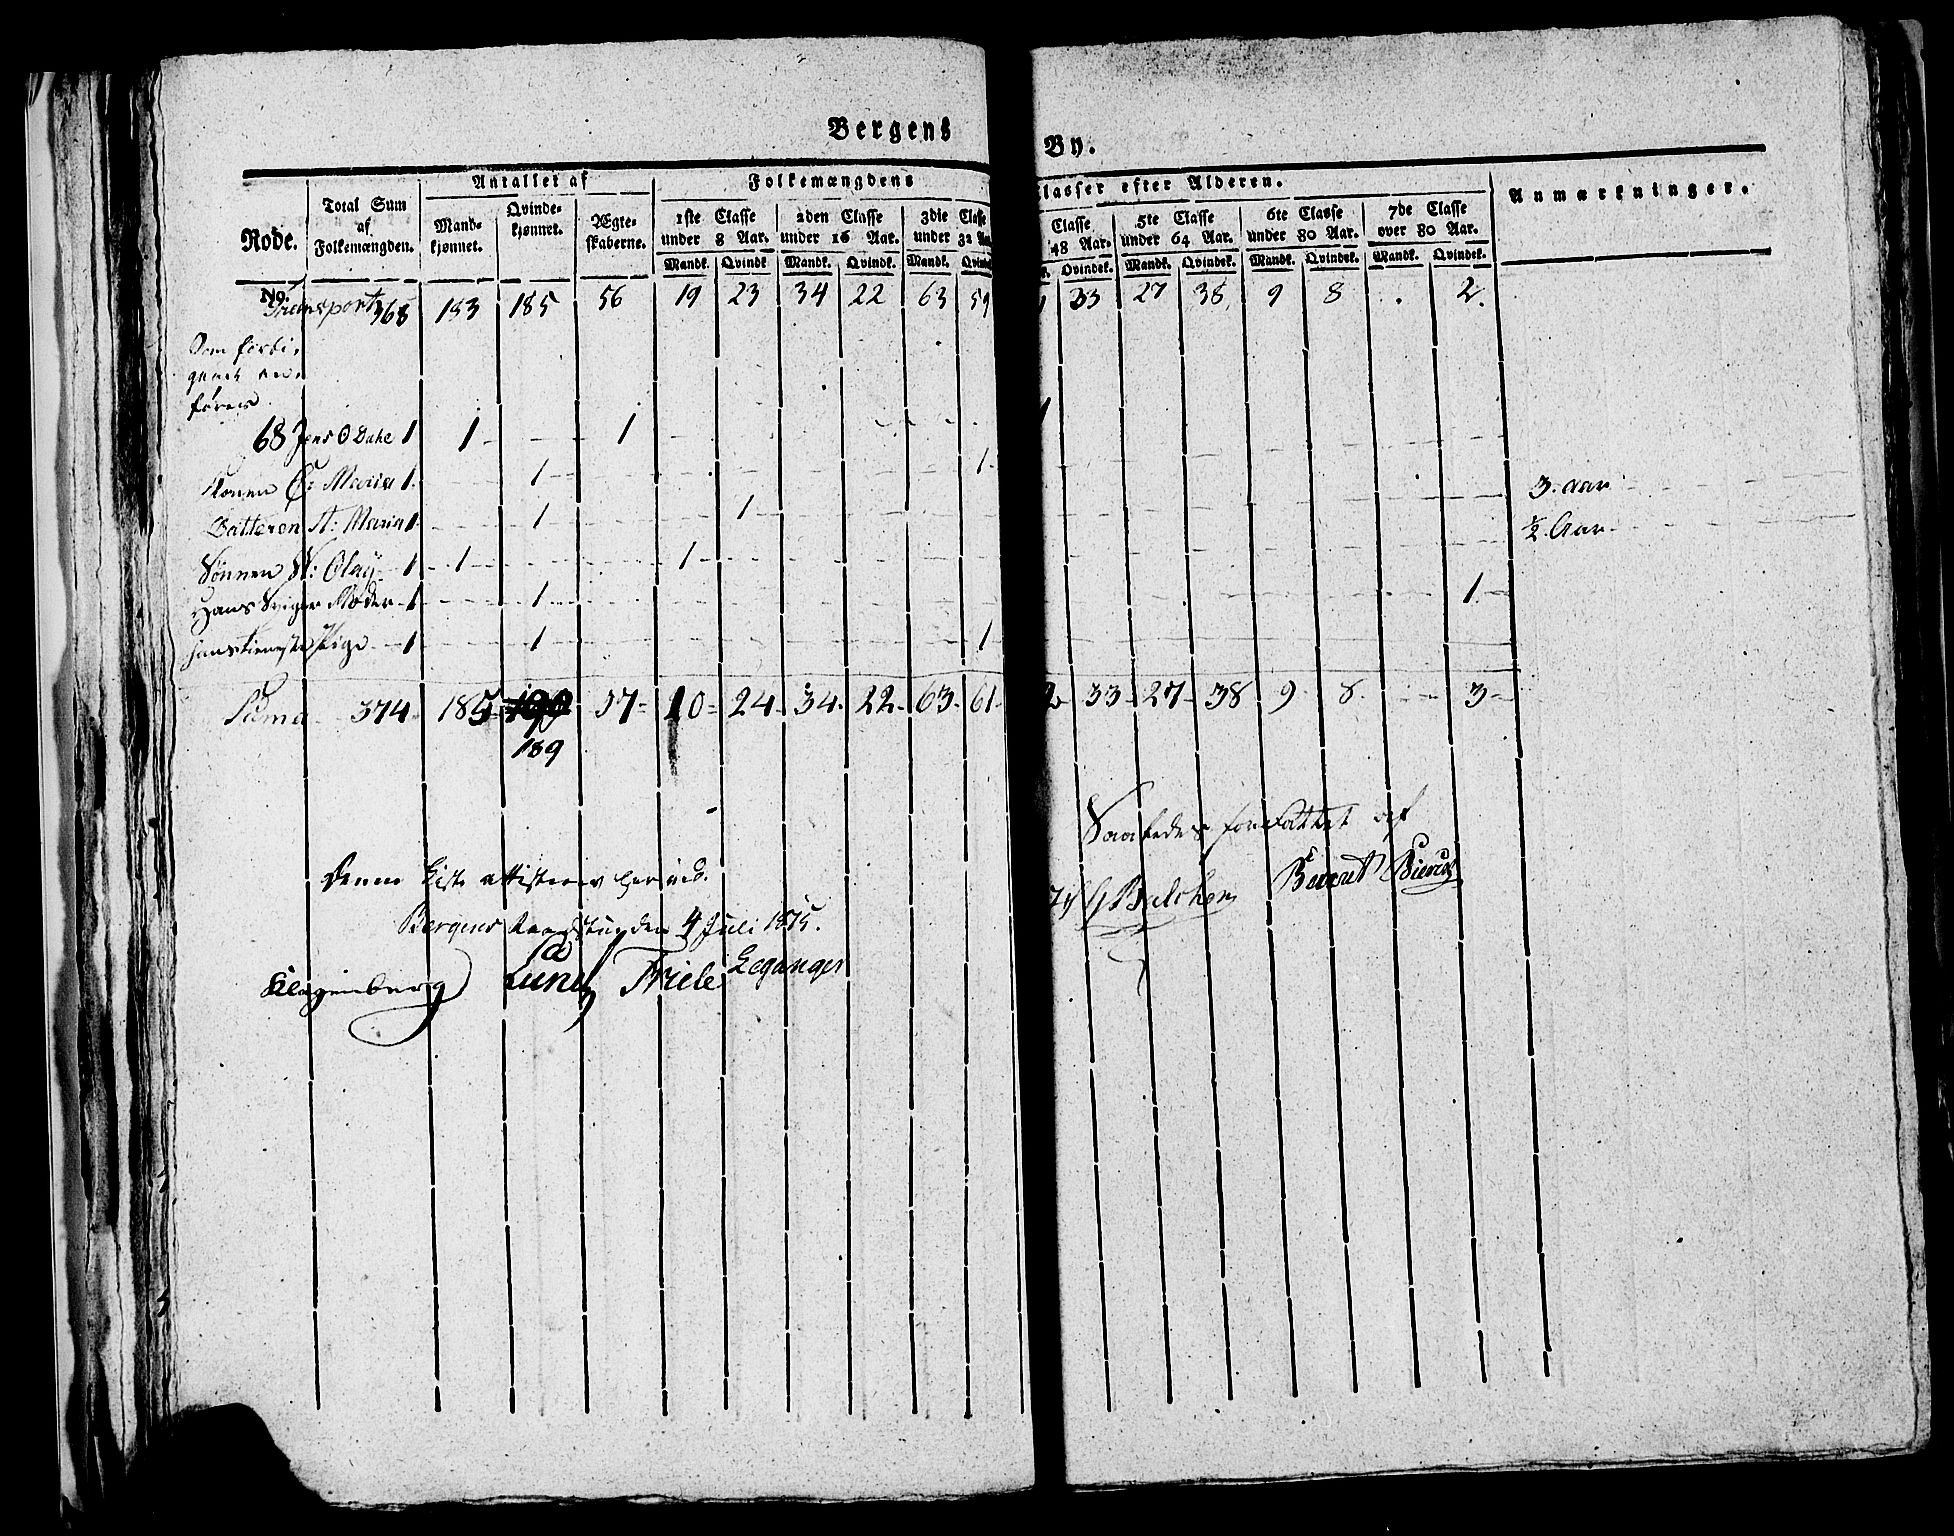 Bergens By.
Antallet af Folkemængdens Classer efter Alderen. Anmærkninger.
Rode. Total Sum af Folkemængden. Mandkjønnet. Qvindekjønnet. Ægteskaberne. 1ste Classe under 8 Aar. 2den Classe under 16 Aar. 3die Classe under 32 Aar. Classe 48 Aar. 5te Classe under 64 Aar. 6te Classe under 80 Aar. 7de Classe over 80 Aar.
Mandk. Qvindk. Mandk. Qvindk. Mandk. Qvindk. Qvindek. Mandk. Qvindek. Mandk. Qvindek. Mandk. Qvindek.
No.
Transport 368 183 185 56 19 23 34 22 63 59 33 27 38 9 8 . 2.
Som forbi-
gaaet an-
føres
68 Jens O Dahe 1 1 1 1
Konen C: Maria 1. 1 1
Datteren A: Maria 1 1 1 3. Aar
Sønnen N: Olay 1 1 1 ½ Aar
Hans Sviger Moder 1 1 1.
hans tieneste Pige 1 1 1
Suma 374 185 190 57 20 24 34 22 63 61 2 33 27 38 9 8 3
189
Saaledes forfattet af
Balchen Berent
Denne Liste attisteres herved.
Bergens Raadstuen den 4 Juli 1815.
Klagenberg Lund Friele Leganger